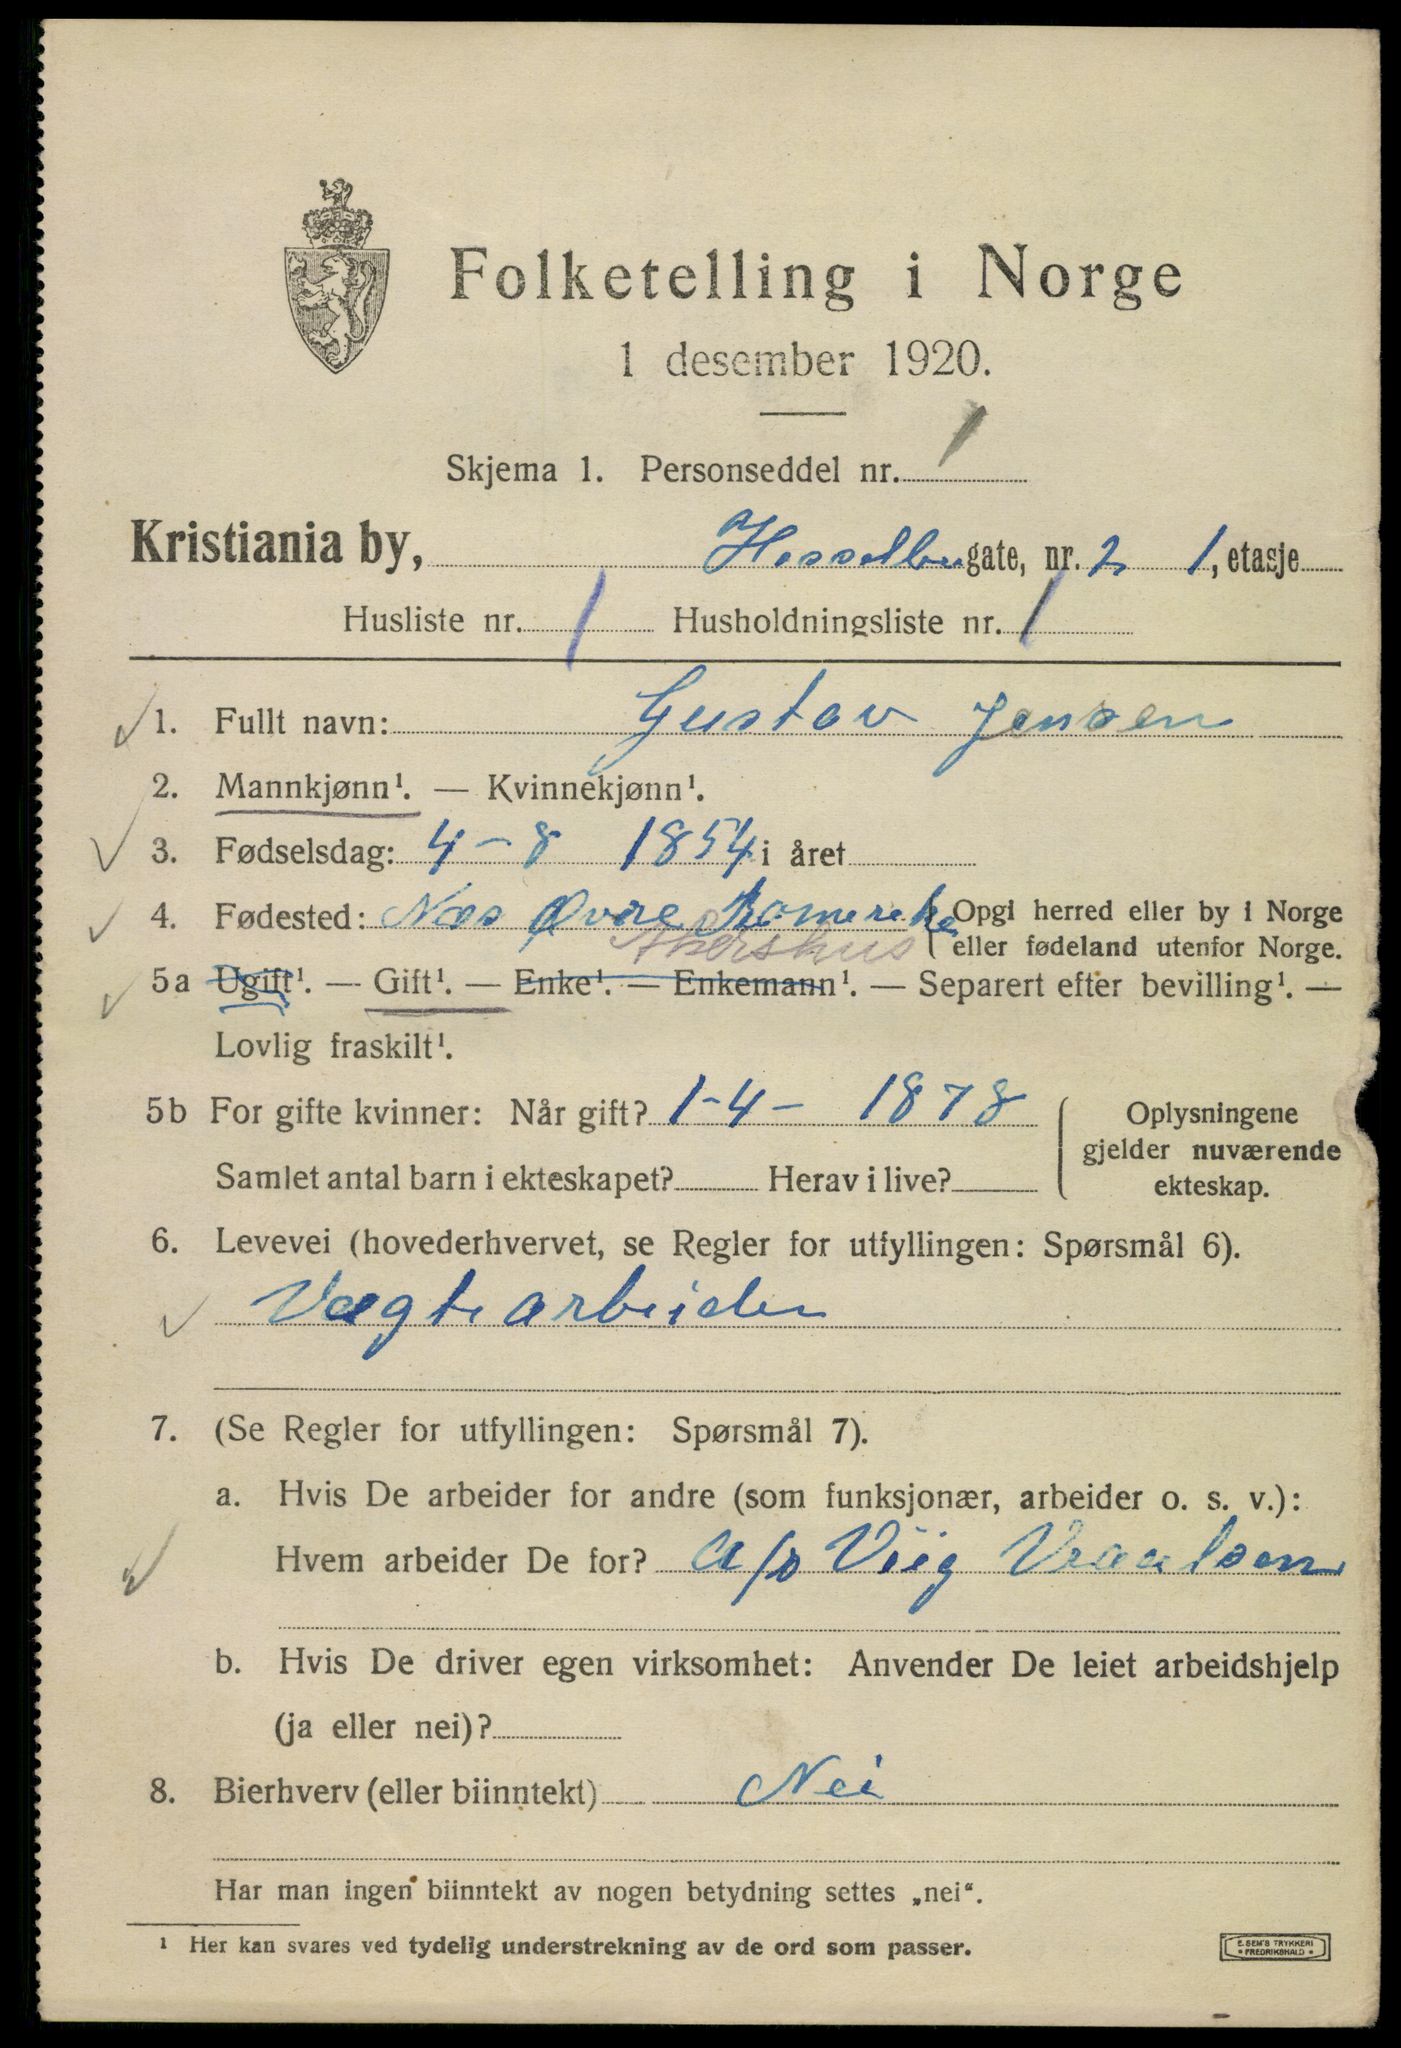 Folketelling i Norge
1 desember 1920.
Skjema 1. Personseddel nr. 1
Kristiania by, Hesselbergate, nr. 2 1, etasje
Husliste nr. 1 Husholdningsliste nr. 1
1. Fullt navn: Gustav Jensen
2. Mannkjønn¹. — Kvinnekjønn¹.
3. Fødselsdag: 4-8 1854 i året
4. Fødested: Næs Øvre Romerike { Opgi herred eller by i Norge
Akershus eller fødeland utenfor Norge.
5a Ugift¹. — Gift¹. — Enke¹. — Enkemann¹. — Separert efter bevilling¹. —
Lovlig fraskilt¹.
5b For gifte kvinner: Når gift? 1-4- 1878
Samlet antal barn i ekteskapet? Herav i live?
{ Oplysningene
gjelder nuværende
ekteskap.
6. Levevei (hovederhvervet, se Regler for utfyllingen: Spørsmål 6).
Vægtearbeider
7. (Se Regler for utfyllingen: Spørsmål 7).
a. Hvis De arbeider for andre (som funksjonær, arbeider o. s. v.):
Hvem arbeider De for? A/S Viig
b. Hvis De driver egen virksomhet: Anvender De leiet arbeidshjelp
(ja eller nei)?
8. Bierhverv (eller biinntekt) Nei
Har man ingen biinntekt av nogen betydning settes „nei“.
¹ Her kan svares ved tydelig understrekning av de ord som passer.
E. SEM'S TRYKKERI
• FREDRIKSHALD •